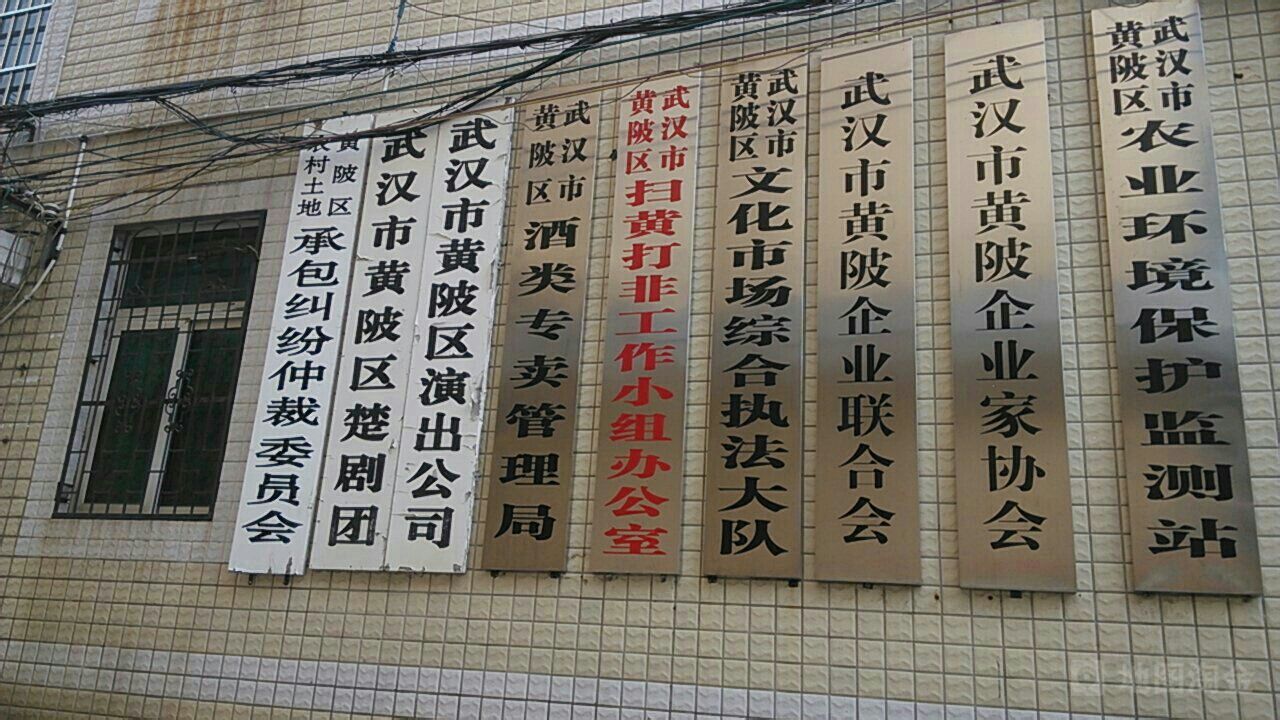 黄陂区农村土地承包纠纷仲裁委员会
武汉市黄陂区楚剧团
武汉市黄陂区演出公司
武汉市黄陂区酒类专卖管理局
武汉市黄陂区扫黄打非工作小组办公室
武汉市黄陂区文化市场综合执法大队
武汉市黄陂企业联合会
武汉市黄陂企业家协会
武汉市黄陂区农业环境保护监测站